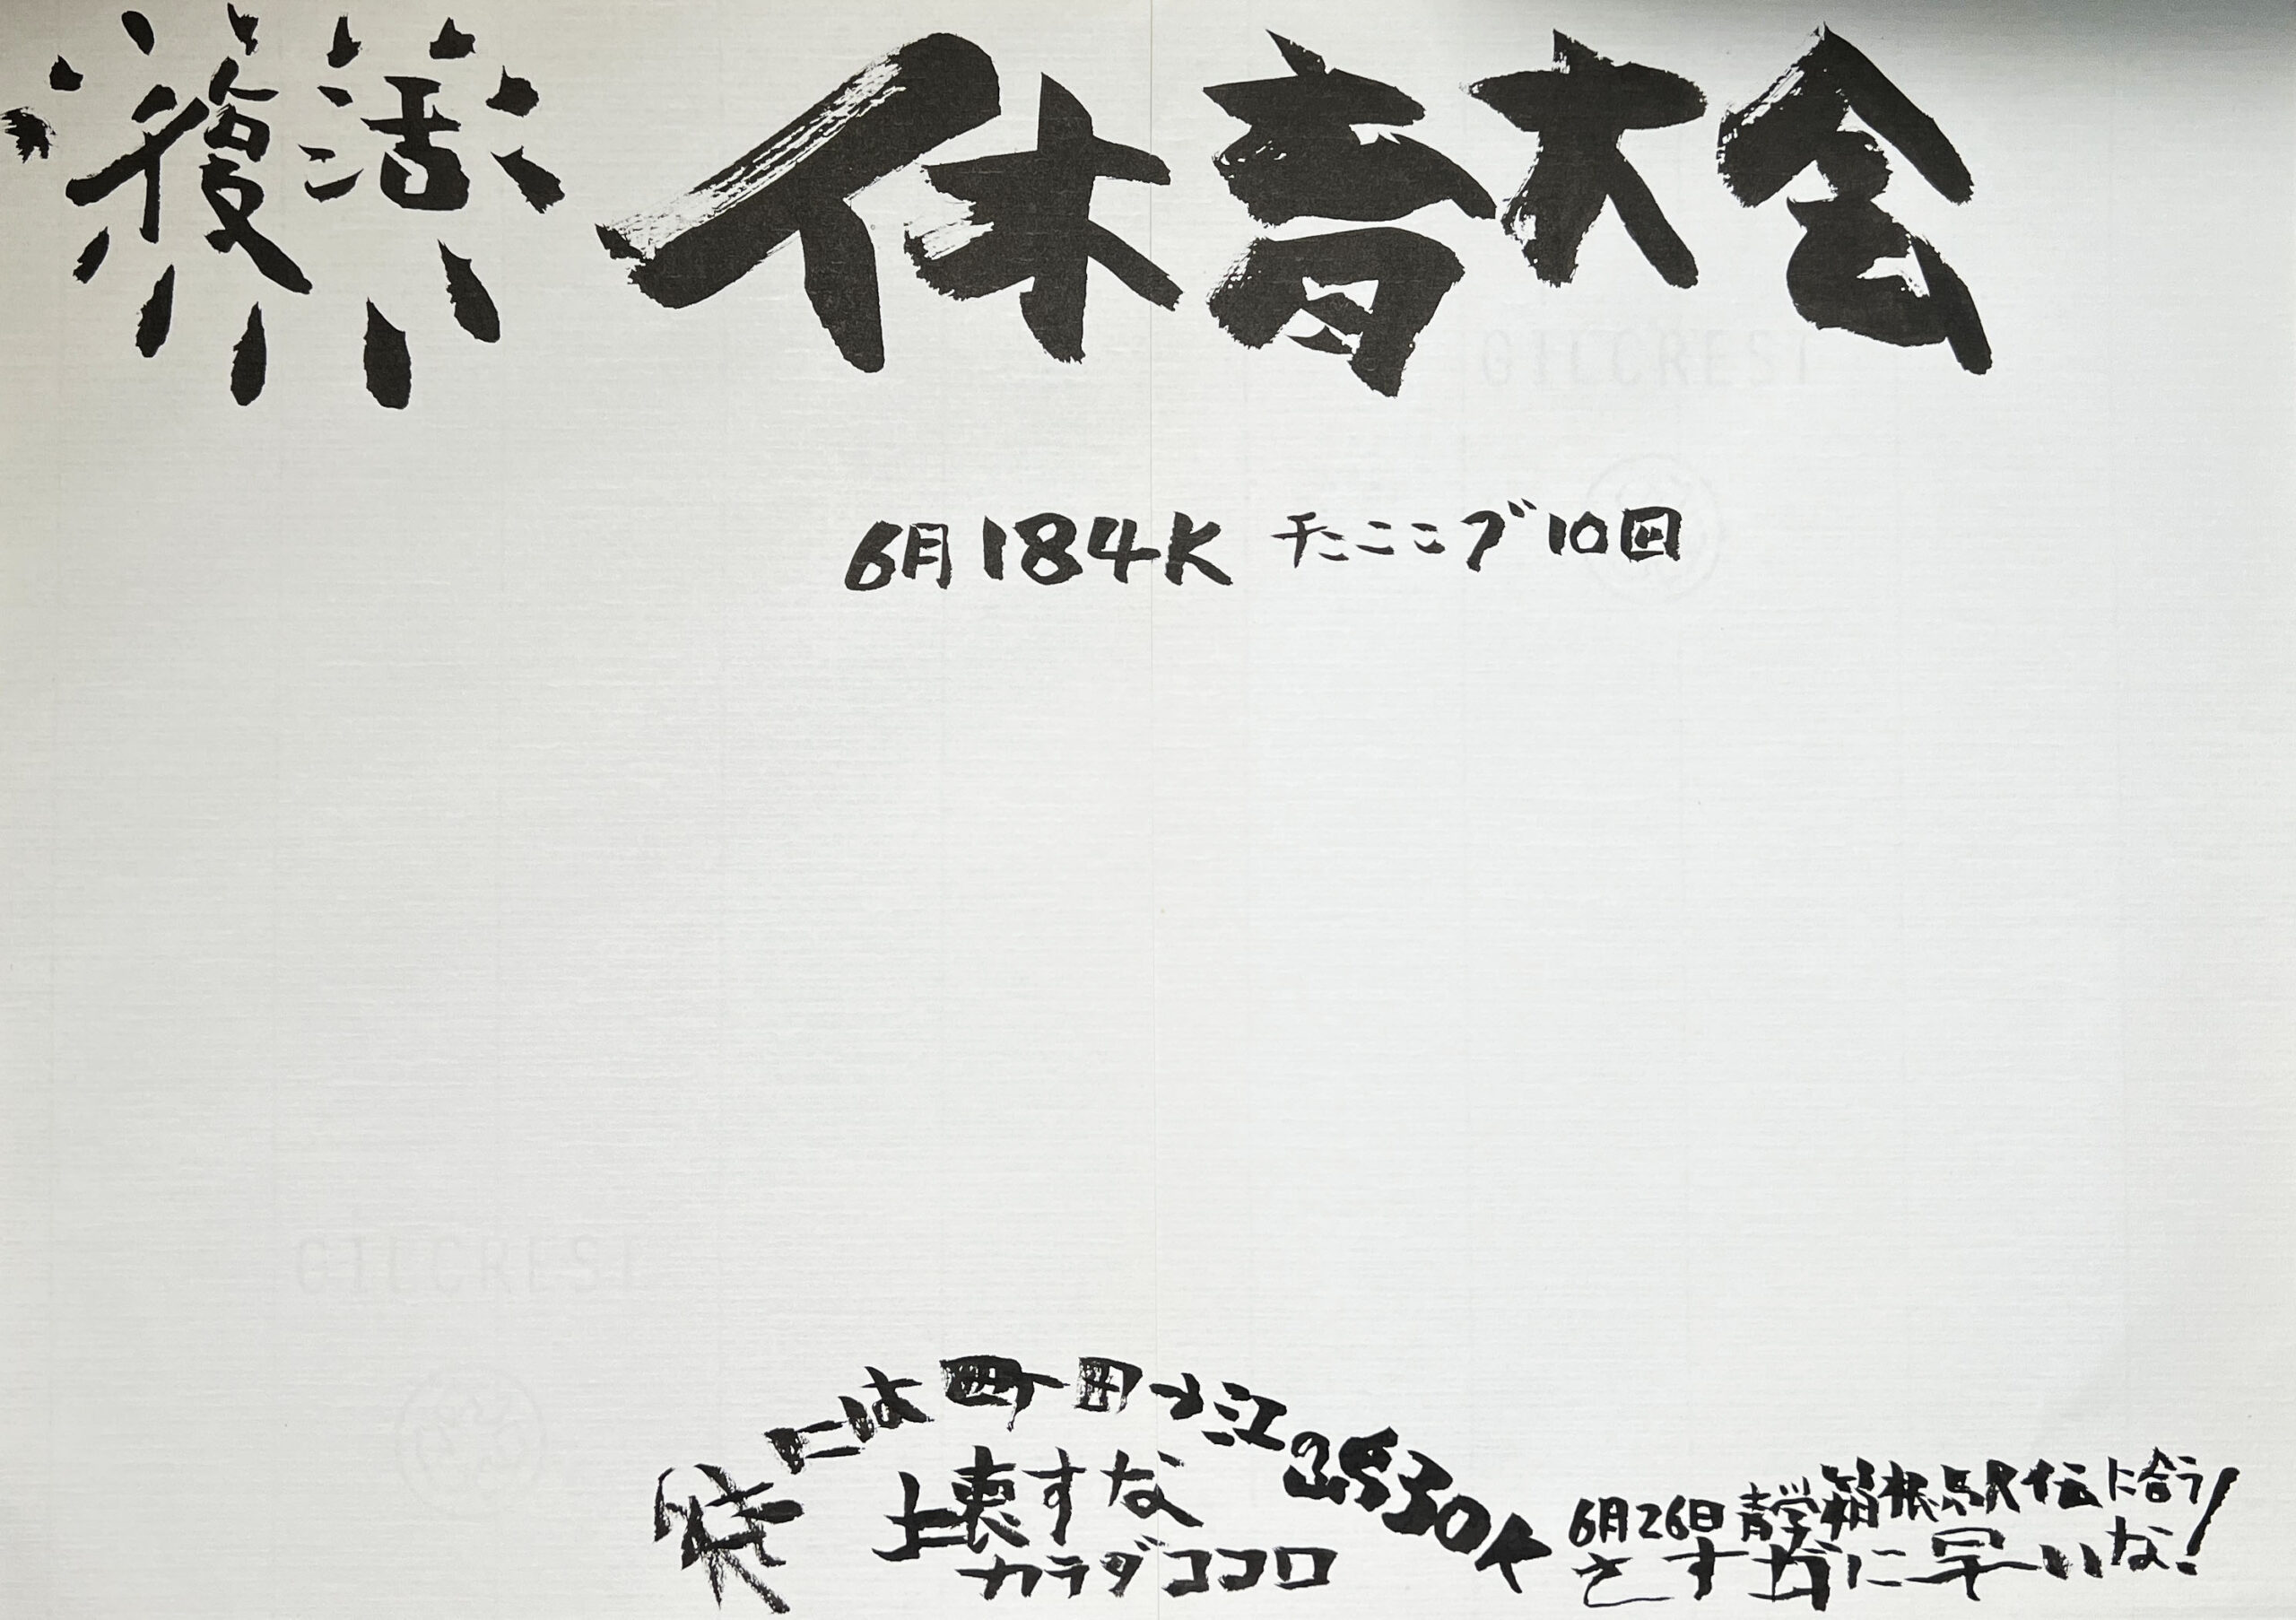 復活 休育大会
6月184K チたここブ10回
特には町田⇔江の島30K
壊すな
カラダココロ
6月26日青学箱根駅伝に合う!
さすがに早いな!
GILCREST
GILCREST